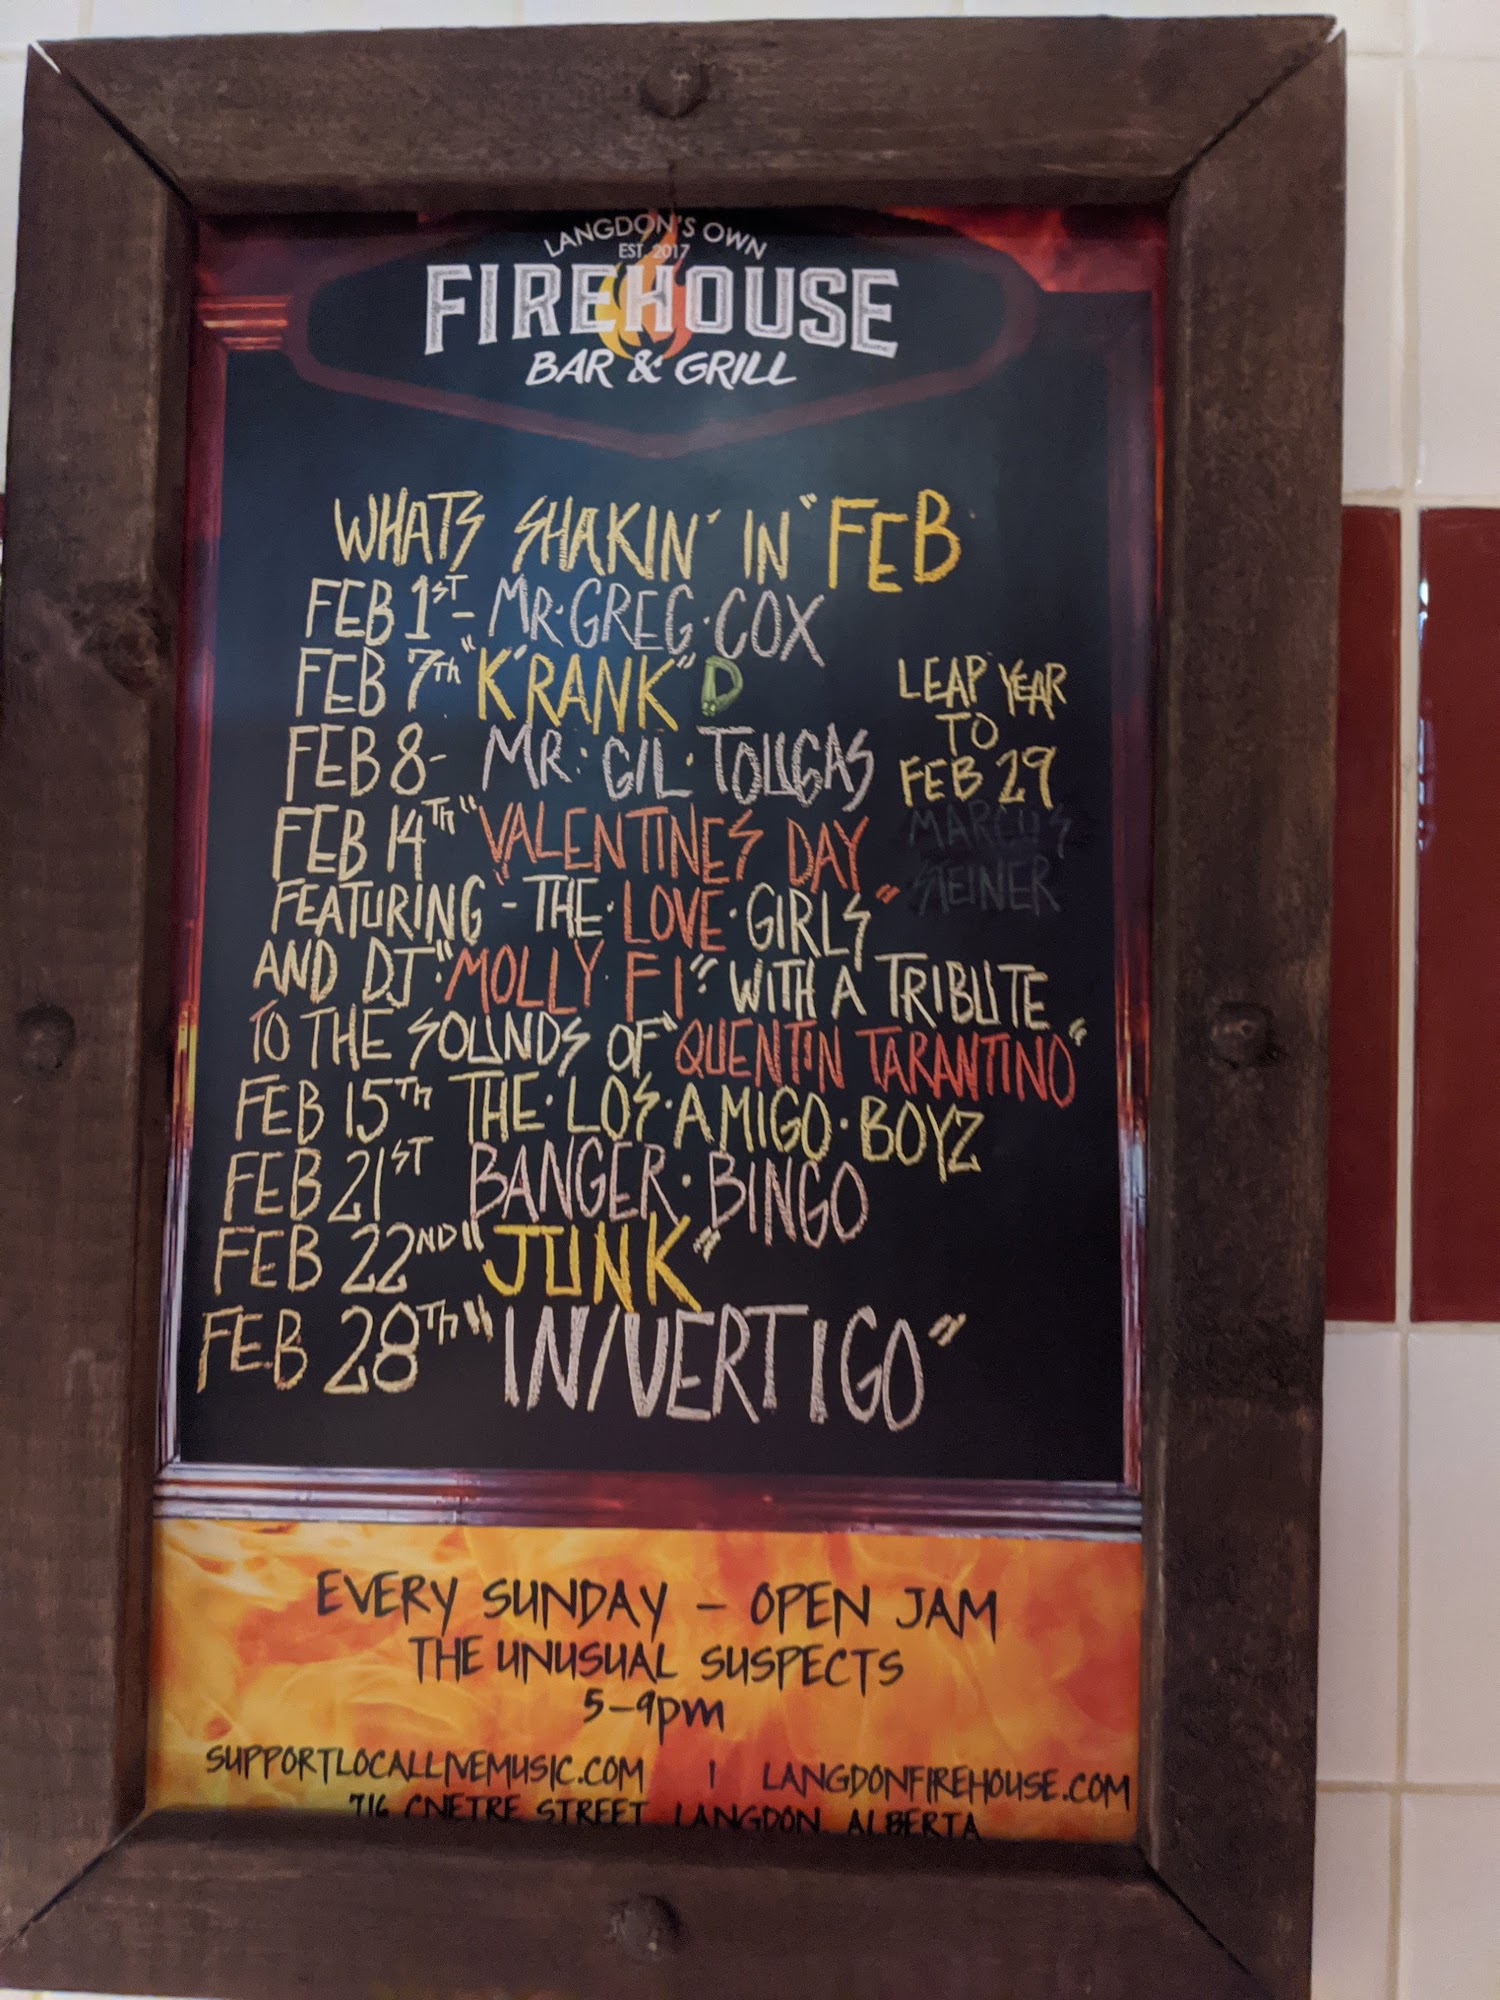 LANGDON'S OWN
EST. 2017
FIREHOUSE
BAR & GRILL
WHATS SHAKIN' IN "FEB
FEB 1ST - MR. GREG. COX
FEB 7TH "K'RANK" D
FEB 8- MR. GIL. TOUGAS
FEB 14TH "VALENTINES DAY
FEATURING - THE. LOVE. GIRLS"
AND DJ. "MOLLY. FI" WITH A TRIBUTE
TO THE SOUNDS OF "QUENTIN TARANTINO"
FEB 15TH THE. LOS. AMIGO. BOYZ
FEB 21ST BANGER. BINGO
FEB 22ND "JUNK"
FEB 28TH "IN/VERTIGO"
LEAP YEAR
TO
FEB 29
MARCUS
STEINER
EVERY SUNDAY – OPEN JAM
THE UNUSUAL SUSPECTS
5-9pm
SUPPORTLOCALLIVEMUSIC.COM | LANGDONFIREHOUSE.COM
716 CNETRE STREET, LANGDON, ALBERTA